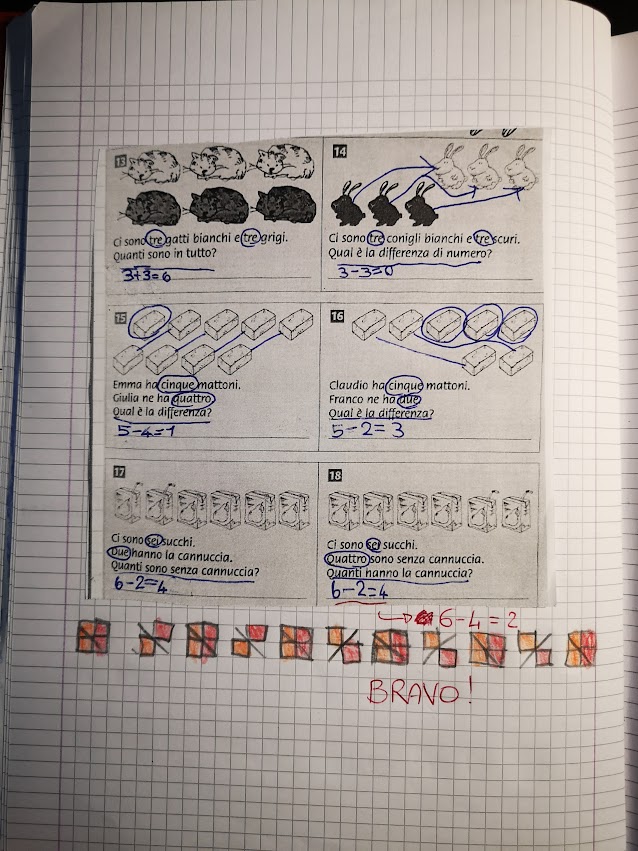 13
Ci sono tre gatti bianchi e tre grigi.
Quanti sono in tutto?
3+3=6
14
Ci sono tre conigli bianchi e tre scuri.
Qual è la differenza di numero?
3-3=0
15
Emma ha cinque mattoni.
Giulia ne ha quattro.
Qual è la differenza?
5-4=1
16
Claudio ha cinque mattoni.
Franco ne ha due.
Qual è la differenza?
5-2=3
17
Ci sono sei succhi.
Due hanno la cannuccia.
Quanti sono senza cannuccia?
6-2=4
18
Ci sono sei succhi.
Quattro sono senza cannuccia.
Quanti hanno la cannuccia?
6-2=4
6-4=2
BRAVO!